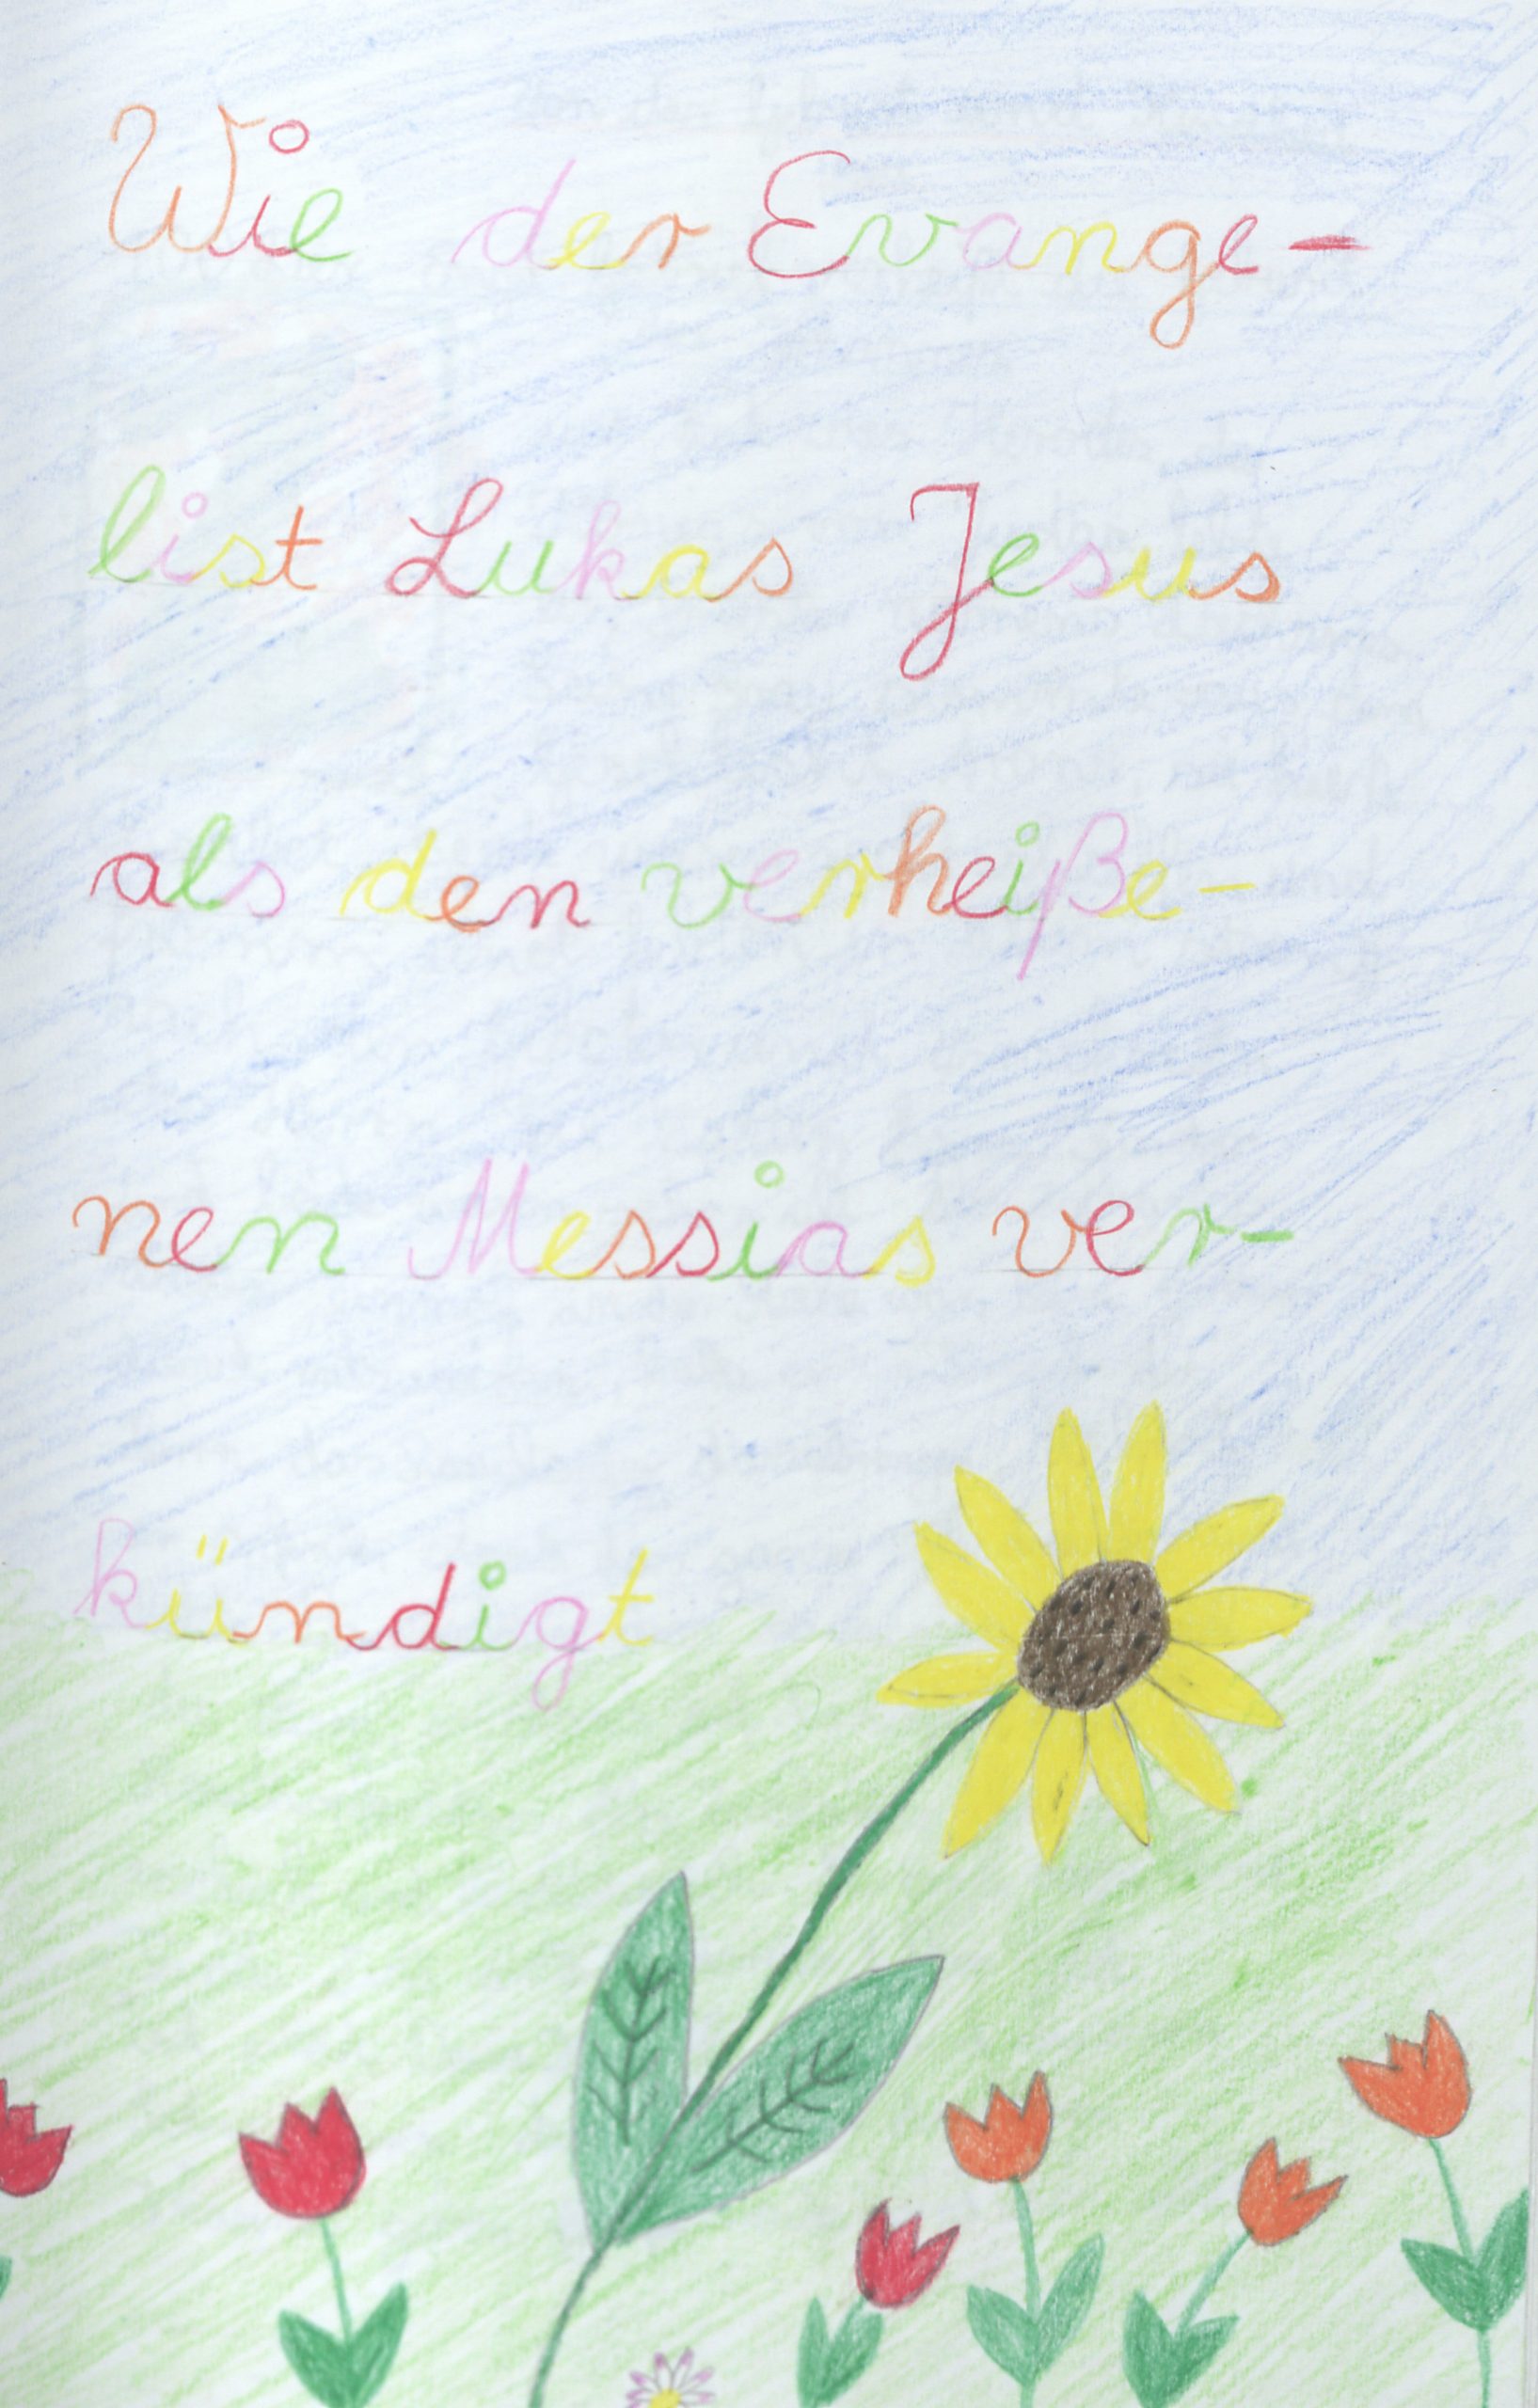 Wie der Evange-
list Lukas Jesus
als den verheiße-
nen Messias ver-
kündigt